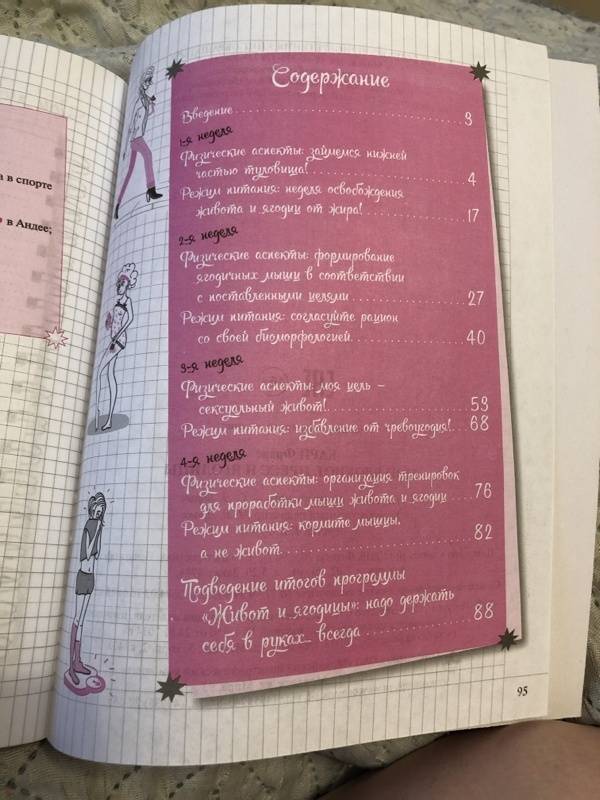 а в спорте
в Андее;
Содержание
Введение 3
1-я неделя
Физические аспекты: займемся нижней
частью туловища! 4
Режим питания: неделя освобождения
живота и ягодиц от жира! 17
2-я неделя
Физические аспекты: формирование
ягодичных мышц в соответствии
с поставленными целями 27
Режим питания: согласуйте рацион
со своей биоморфологией. 40
3-я неделя
Физические аспекты: моя цель –
сексуальный живот! 53
Режим питания: избавление от чревоугодия! 68
4-я неделя
Физические аспекты: организация тренировок
для проработки мышц живота и ягодиц 76
Режим питания: кормите мышцы,
а не живот. 82
Подведение итогов программы
«Живот и ягодицы»: надо держать
себя в руках... всегда 88
95